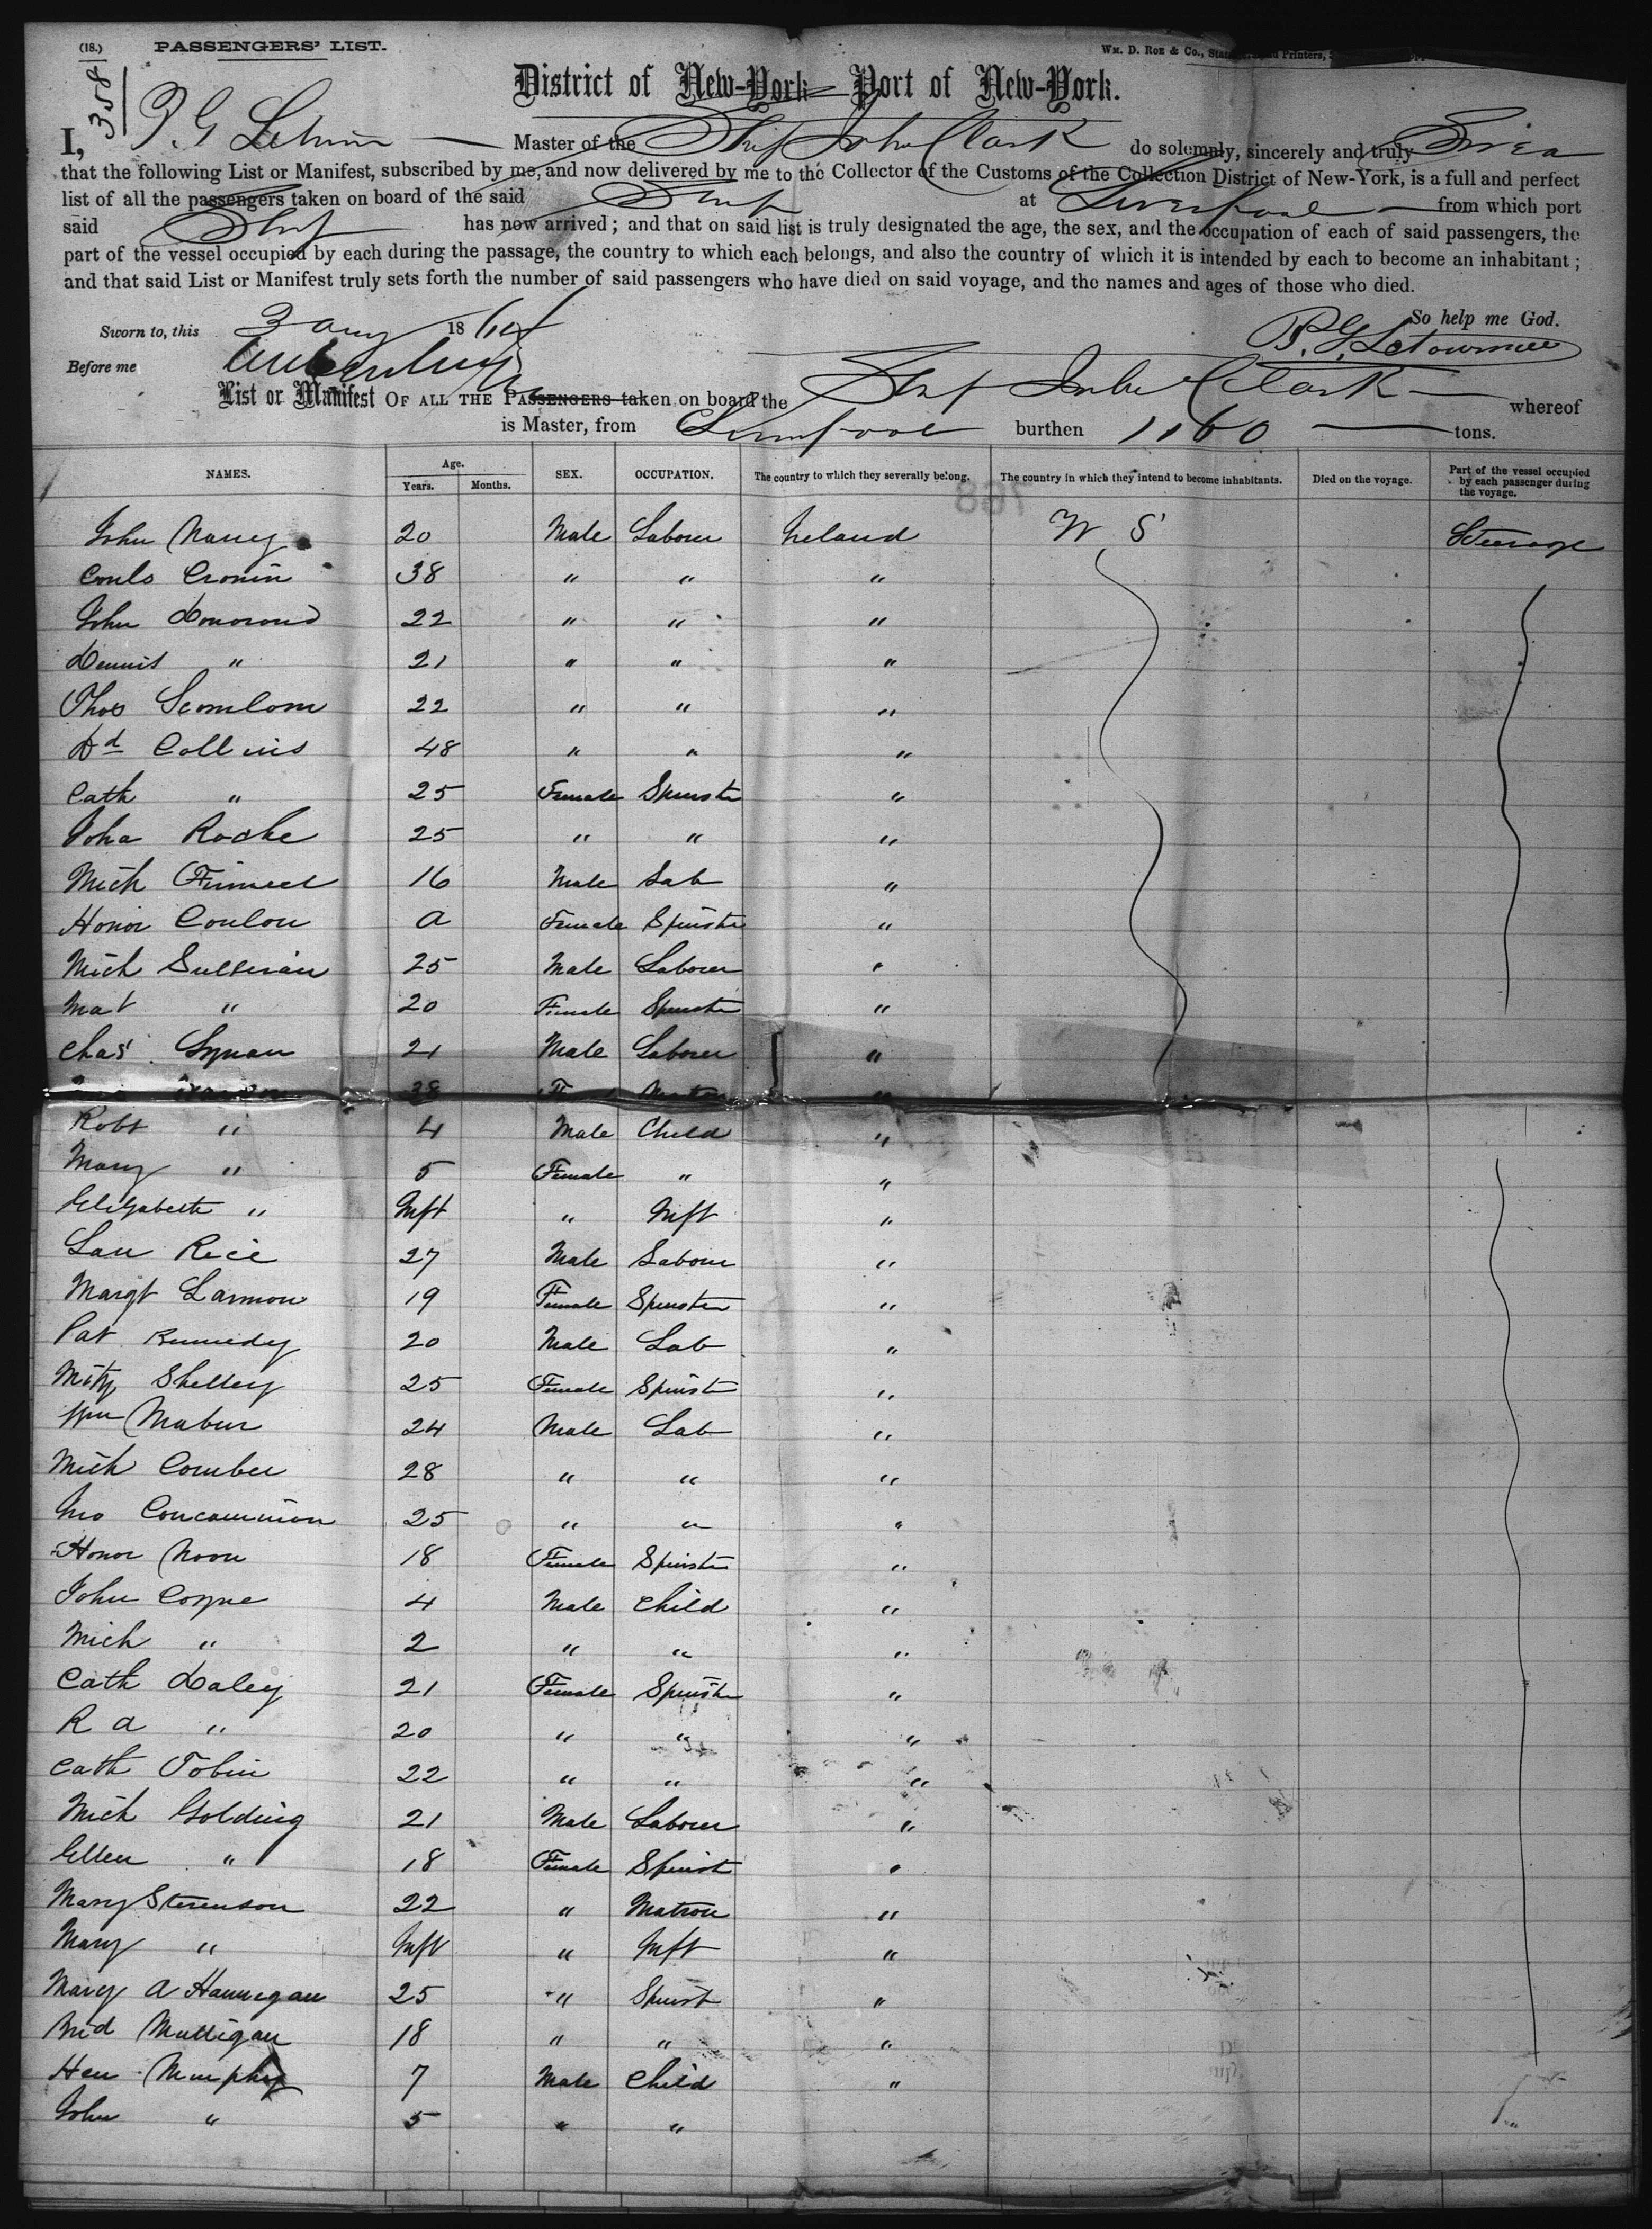 (18.) PASSENGERS' LIST. WM. D. ROE & Co., Printers,
358
District of New-York—Port of New-York.
I, P. G. Master of the Ship John Clark do solemnly, sincerely and truly Swear
that the following List or Manifest, subscribed by me, and now delivered by me to the Collector of the Customs of the Collection District of New-York, is a full and perfect
list of all the passengers taken on board of the said Ship at Liverpool from which port
said Ship has now arrived; and that on said list is truly designated the age, the sex, and the occupation of each of said passengers, the
part of the vessel occupied by each during the passage, the country to which each belongs, and also the country of which it is intended by each to become an inhabitant;
and that said List or Manifest truly sets forth the number of said passengers who have died on said voyage, and the names and ages of those who died.
So help me God.
Sworn to, this 3 Aug 186 P. G. Letourneau
Before me
List or Manifest OF ALL THE PASSENGERS taken on board the Ship John Clark whereof
is Master, from Liverpool burthen 1160 tons.
NAMES. Age. Years. Months. SEX. OCCUPATION. The country to which they severally belong. The country in which they intend to become inhabitants. Died on the voyage. Part of the vessel occupied by each passenger during the voyage.
768
John 20 Male Laborer Ireland U S Steerage
Cronin 38 " " "
John Donovand 22 " " "
Dennis " 21 " " "
Thos 22 " " "
Dd Collins 48 " " "
Cath " 25 Female Spinster "
Joha Roche 25 " " "
Mich 16 Male Lab "
Honor Conlon a Female Spinster "
Mich Sullivan 25 Male Laborer "
Mat " 20 Female Spinster "
Chas Lynan 21 Male Laborer "
38 F Matron "
Robt " 4 Male Child "
Mary " 5 Female " "
Elizabeth " Inft " Inft "
Lau Rice 27 Male Labour "
Margt Larmon 19 Female Spinster "
Pat Kennedy 20 Male Lab "
Shelley 25 Female Spinst "
Wm Mabur 24 Male Lab "
Mich Comber 28 " " "
Jno Concannion 25 " " "
Honor Noon 18 Female Spinster "
John Coyne 4 Male Child "
Mich " 2 " " "
Cath Daley 21 Female Spinster "
R a " 20 " " "
Cath Tobin 22 " " "
Mich Golding 21 Male Laborer "
Ellen " 18 Female Spinst "
Mary Stevenson 22 " Matron "
Mary " Inft " Inft "
Mary A Hannegan 25 " Spinst "
Brid Mulligan 18 " " "
Hen Murphy 7 Male Child "
John " 5 " "